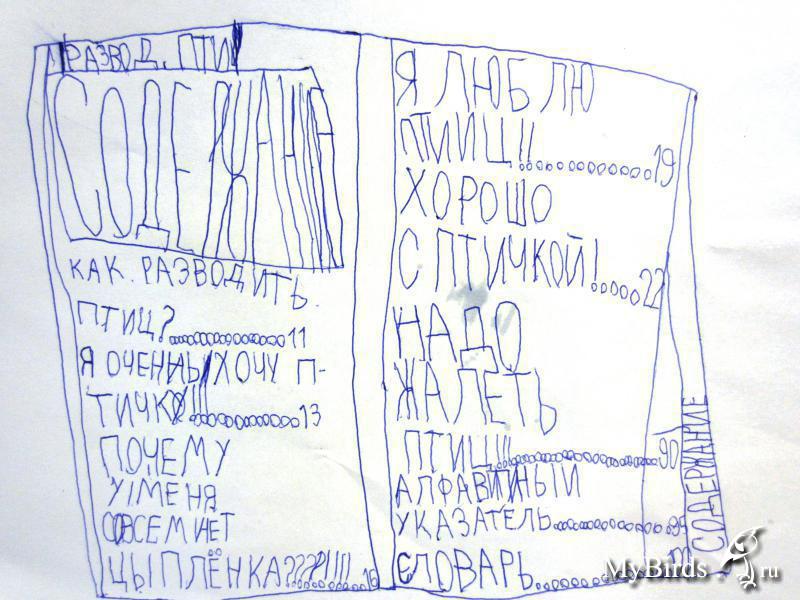 РАЗВОД. ПТИЦ
СОДЕРЖАНИЕ
КАК. РАЗВОДИТЬ.
ПТИЦ?..............11
Я ОЧЕННЬ ХОЧУ П-
ТИЧКУ!!!..............13
ПОЧЕМУ
У МЕНЯ
СОВСЕМ НЕТ
ЦЫПЛЁНКА????!!!!.......16
Я ЛЮБЛЮ
ПТИИЦ!!..............19
ХОРОШО
С ПТИЧКОЙ!.....22
НАДО
ЖАЛЕТЬ
ПТИЦ!!!..............90
АЛФАВИТНЫЙ
УКАЗАТЕЛЬ..............99
СЛОВАРЬ..............
СОДЕРЖАНИЕ
MyBirds.ru